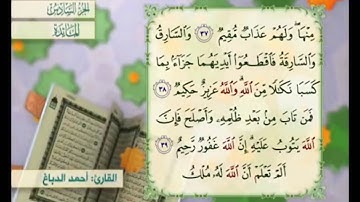 الجزء السادس
المائدة
مِنْهَا وَلَهُمْ عَذَابٌ مُّقِيمٌ ٣٧ وَالسَّارِقُ
وَالسَّارِقَةُ فَاقْطَعُوا أَيْدِيَهُمَا جَزَاءً بِمَا
كَسَبَا نَكَالًا مِّنَ اللَّهِ وَاللَّهُ عَزِيزٌ حَكِيمٌ ٣٨
فَمَن تَابَ مِن بَعْدِ ظُلْمِهِ وَأَصْلَحَ فَإِنَّ
اللَّهَ يَتُوبُ عَلَيْهِ إِنَّ اللَّهَ غَفُورٌ رَّحِيمٌ ٣٩
أَلَمْ تَعْلَمْ أَنَّ اللَّهَ لَهُ مُلْكُ
القارئ: أحمد الدباغ